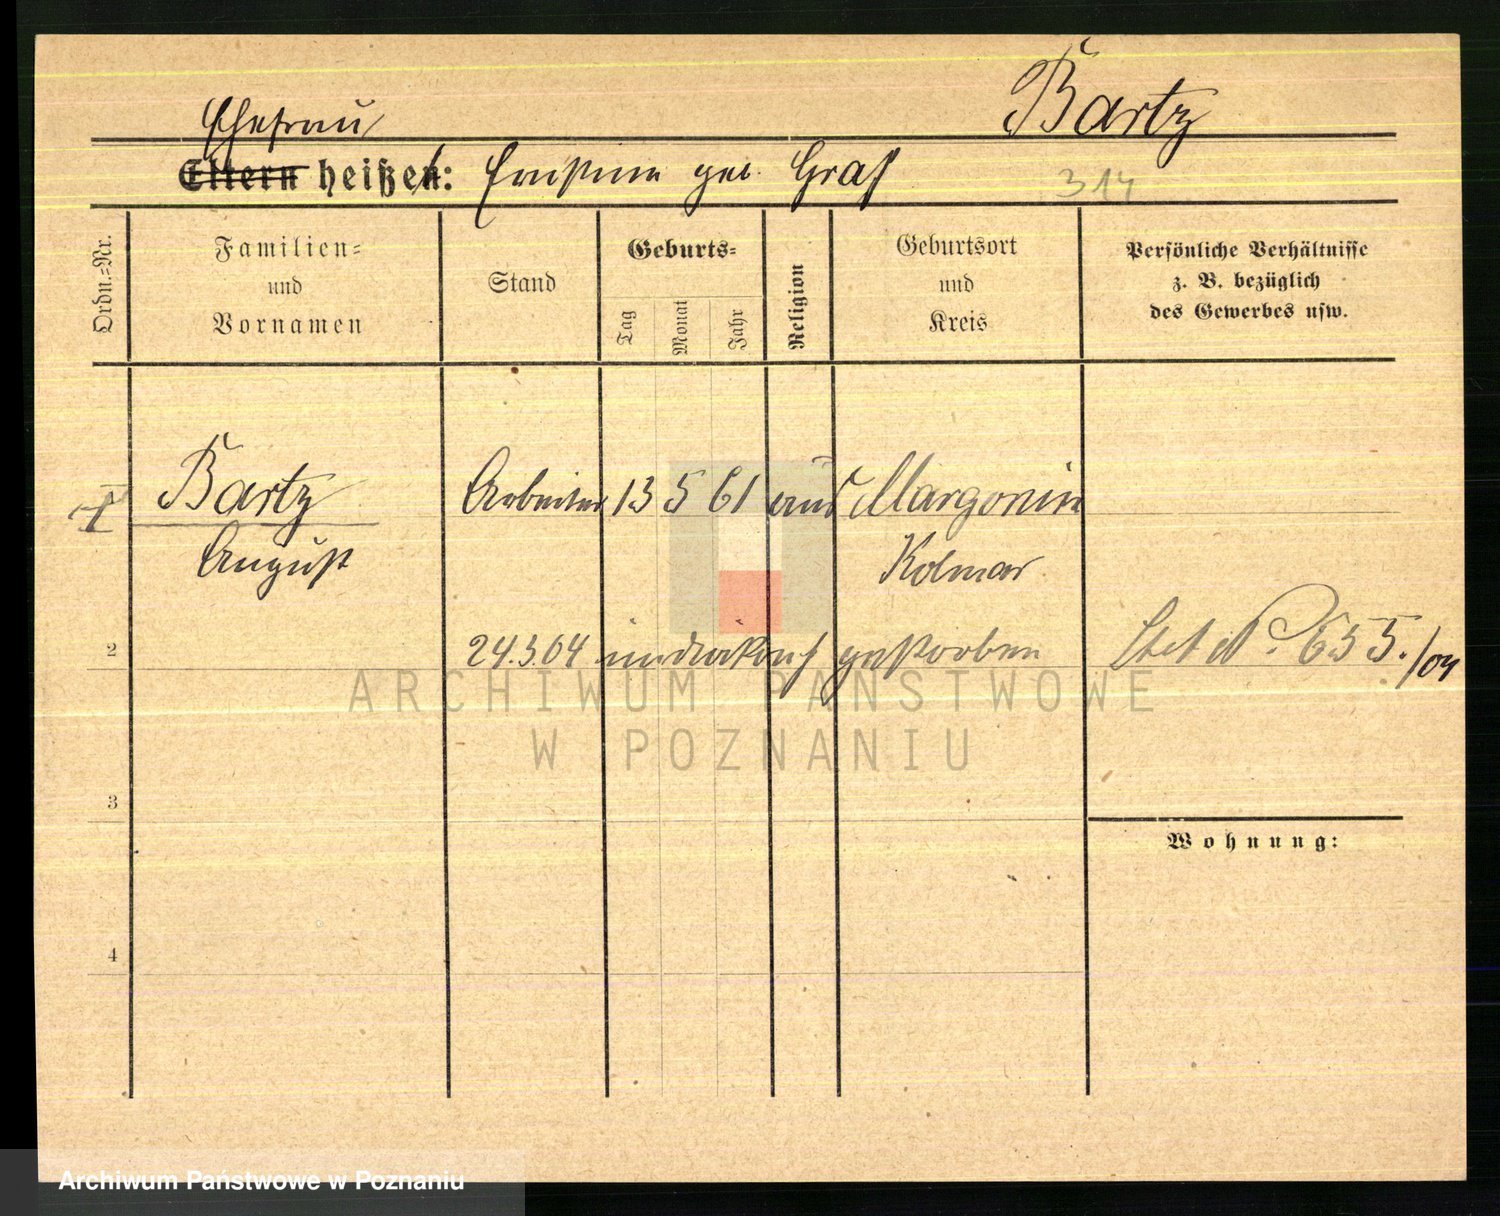 Bartz
Ehefrau
Eltern heißen: Ernstine geb. Graf
314
Ordn.-Nr.
Familien-
und
Vornamen
Stand
Geburts-
Tag
Monat
Jahr
Religion
Geburtsort
und
Kreis
Persönliche Verhältnisse
z. B. bezüglich
des Gewerbes usw.
Bartz Arbeiter 13 5 61 aus Margonin
August Kolmar
2 24.3.04 gestorben 655./04
ARCHIWUM PAŃSTWOWE
W POZNANIU
3
Wohnung:
4
Archiwum Państwowe w Poznaniu